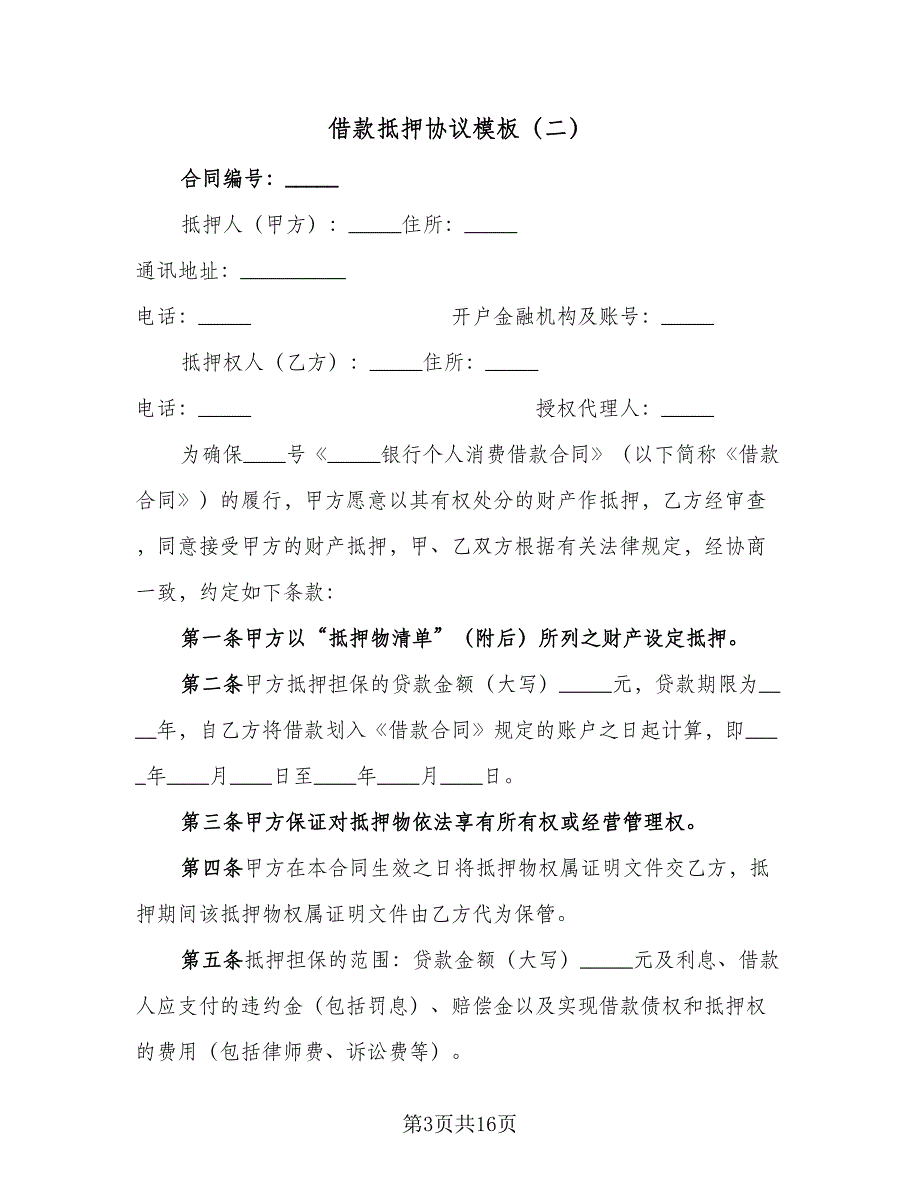 借款抵押协议模板（二）
合同编号：_____
抵押人（甲方）：_____住所：_____
通讯地址：__________
电话：_____ 开户金融机构及账号：_____
抵押权人（乙方）：_____住所：_____
电话：_____ 授权代理人：_____
为确保____号《_____银行个人消费借款合同》（以下简称《借款
合同》）的履行，甲方愿意以其有权处分的财产作抵押，乙方经审查
，同意接受甲方的财产抵押，甲、乙双方根据有关法律规定，经协商
一致，约定如下条款：
第一条甲方以“抵押物清单”（附后）所列之财产设定抵押。
第二条甲方抵押担保的贷款金额（大写）_____元，贷款期限为__
__年，自乙方将借款划入《借款合同》规定的账户之日起计算，即___
_年____月____日至____年____月____日。
第三条甲方保证对抵押物依法享有所有权或经营管理权。
第四条甲方在本合同生效之日将抵押物权属证明文件交乙方，抵
押期间该抵押物权属证明文件由乙方代为保管。
第五条抵押担保的范围：贷款金额（大写）_____元及利息、借款
人应支付的违约金（包括罚息）、赔偿金以及实现借款债权和抵押权
的费用（包括律师费、诉讼费等）。
第3页共16页